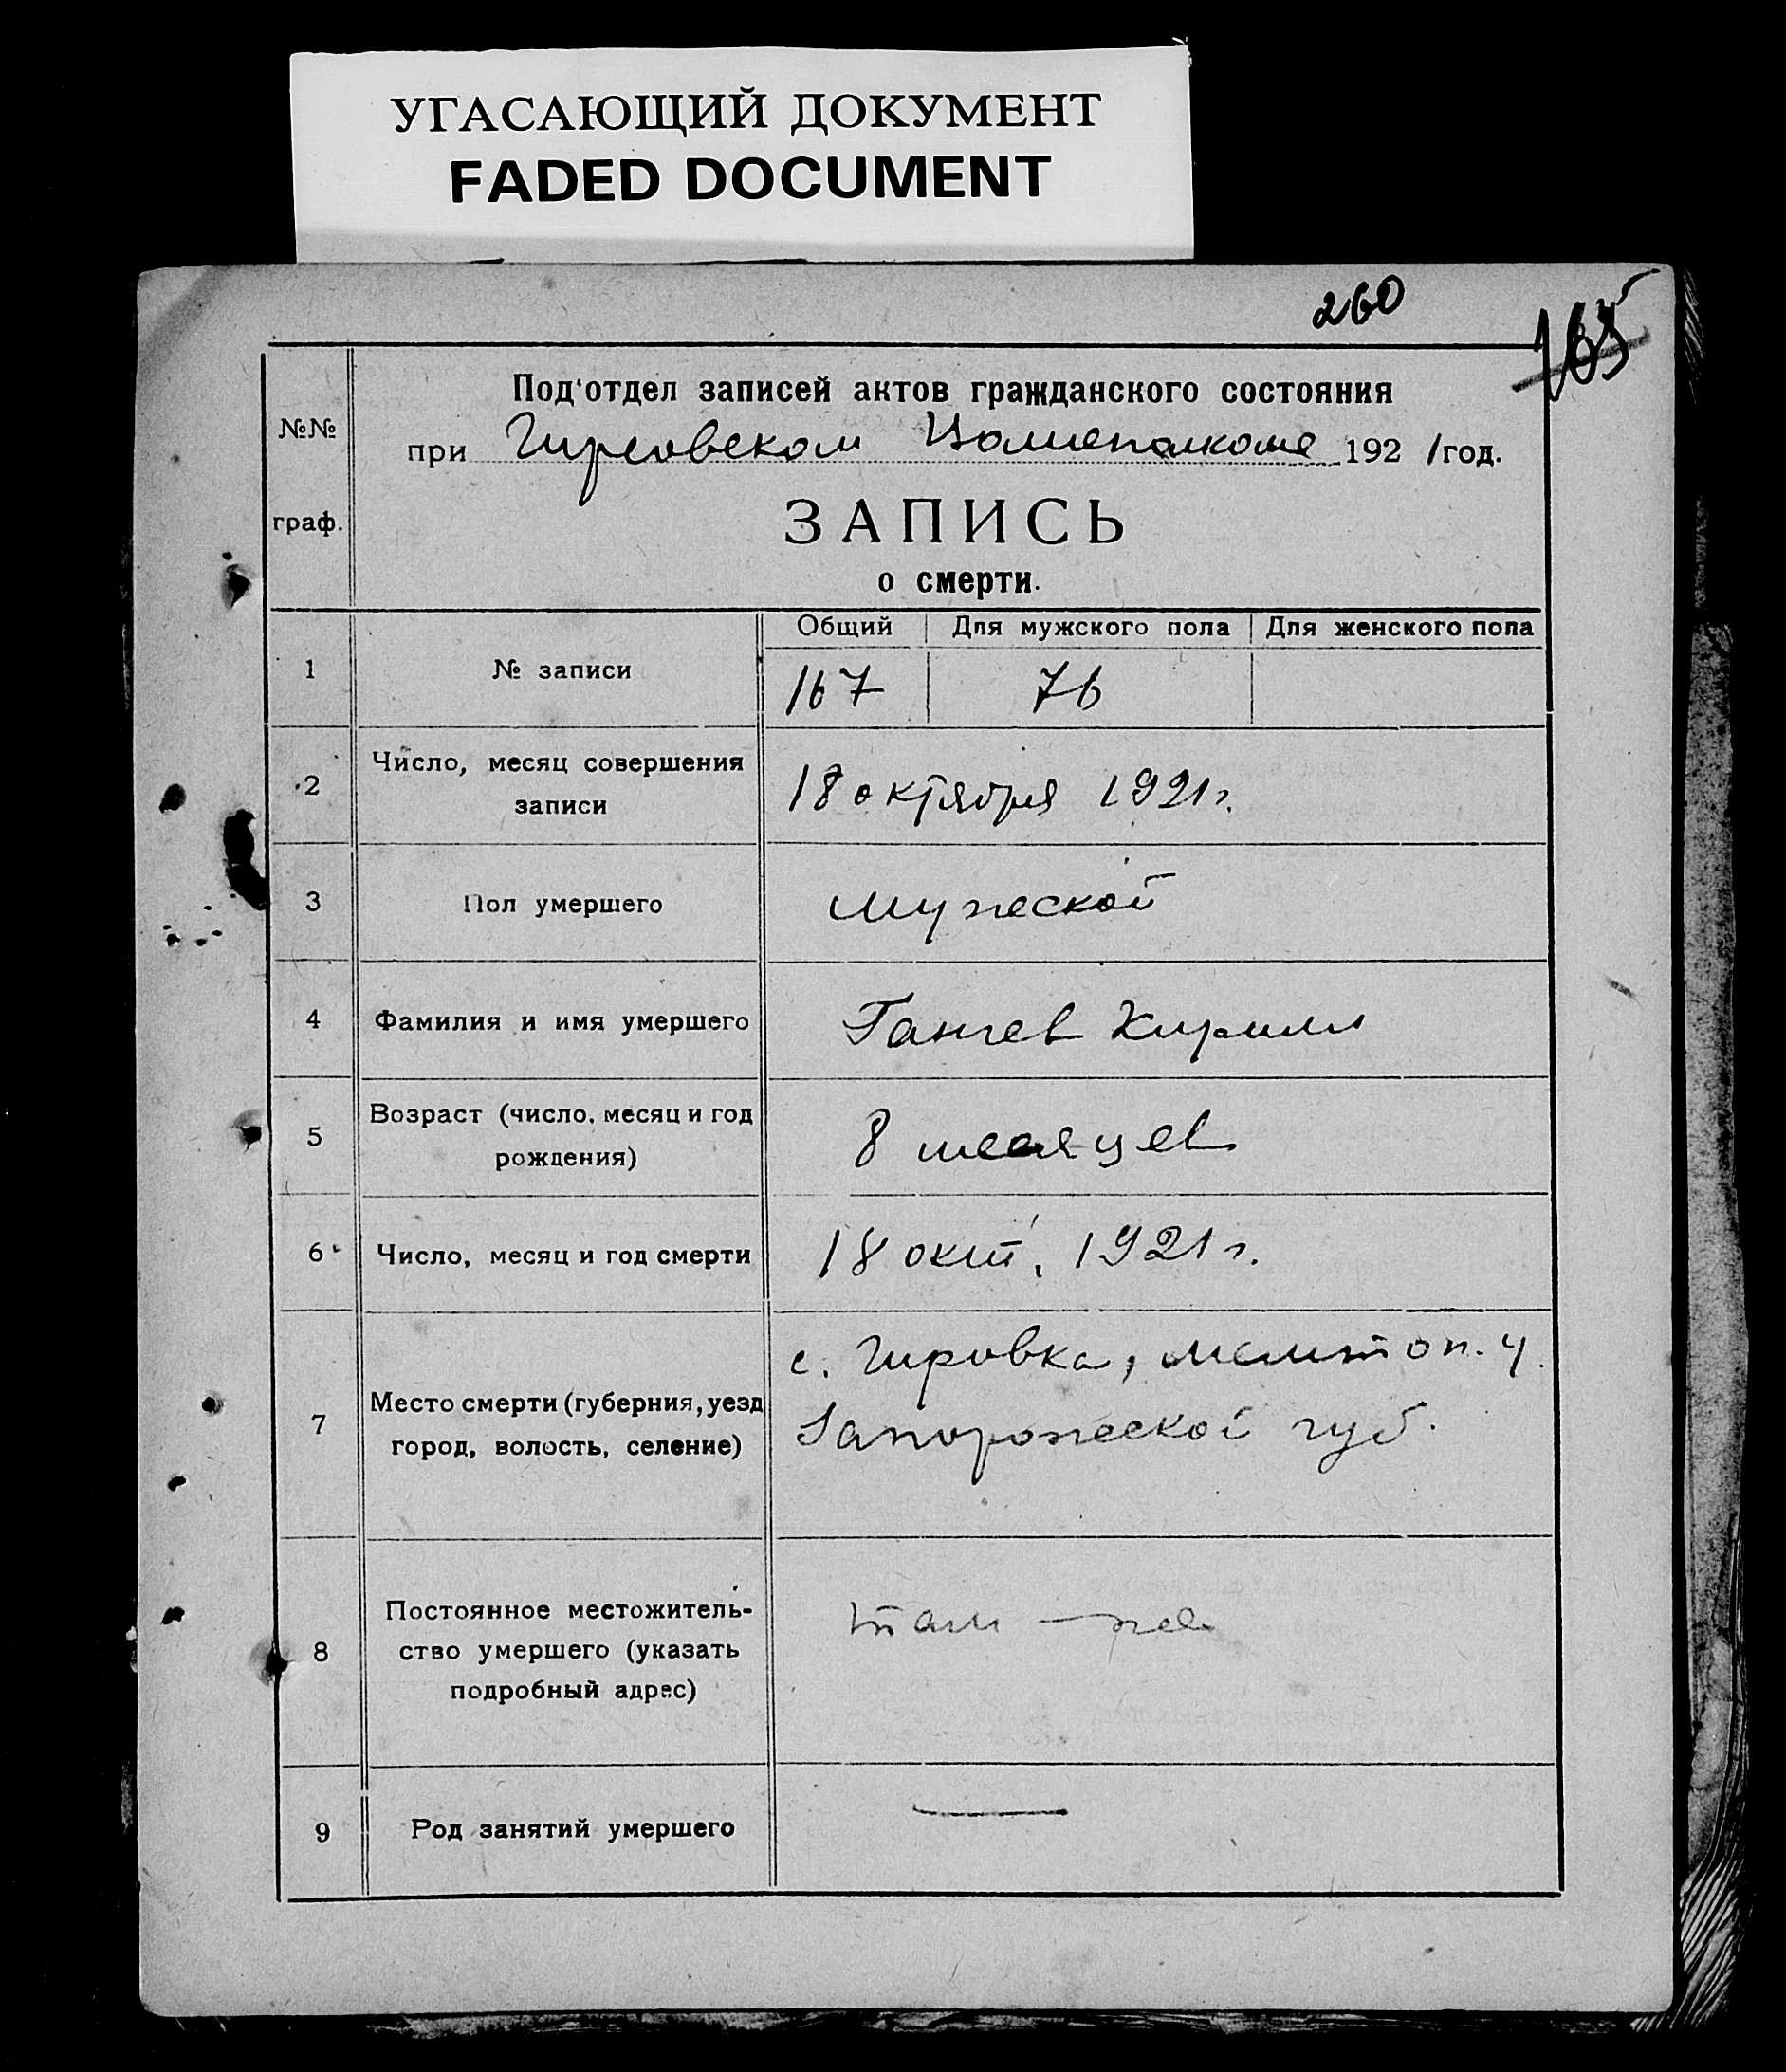 УГАСАЮЩИЙ ДОКУМЕНТ
FADED DOCUMENT
260
165
№№ граф.
Под'отдел записей актов гражданского состояния
при Гирсовском Волисполкоме 1921 год.
ЗАПИСЬ
о смерти.
Общий Для мужского пола Для женского пола
1 № записи 167 76
2 Число, месяц совершения
записи
18 октября 1921 г.
3 Пол умершего мужеской
4 Фамилия и имя умершего Ганчев Кирилл
5 Возраст (число, месяц и год
рождения)
8 месяцев
6 Число, месяц и год смерти 18 окт. 1921 г.
7 Место смерти (губерния, уезд
город, волость, селение)
с. Гировка, Мелитоп. у.
Запорожской губ.
8 Постоянное местожитель-
ство умершего (указать
подробный адрес)
там-же
9 Род занятий умершего —